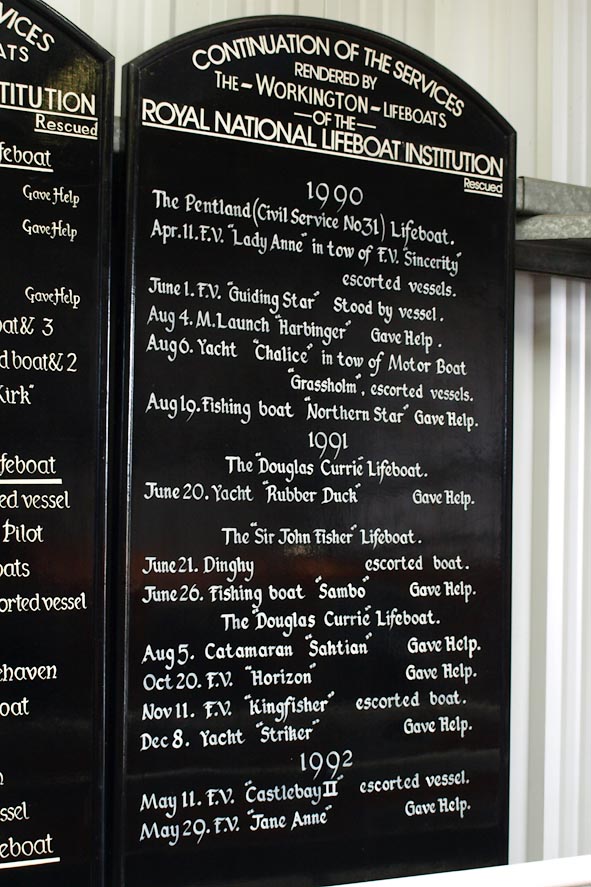 VICES
ATS
TITUTION
Rescued
feboat
Gave Help
Gave Help
Gave Help
oat& 3
d boat& 2
Kirk"
feboat
ed vessel
Pilot
oats
orted vessel
ehaven
oat
ssel
eboat
CONTINUATION OF THE SERVICES
RENDERED BY
THE-WORKINGTON-LIFEBOATS
-OF THE-
ROYAL NATIONAL LIFEBOAT INSTITUTION
Rescued
1990
The Pentland (Civil Service No 31) Lifeboat.
Apr. 11. F.V. "Lady Anne" in tow of F.V. "Sincerity"
escorted vessels.
June 1. F.V. "Guiding Star" Stood by vessel.
Aug 4. M. Launch "Harbinger" Gave Help.
Aug 6. Yacht "Chalice" in tow of Motor Boat
"Grassholm", escorted vessels.
Aug 19. Fishing boat "Northern Star" Gave Help.
1991
The "Douglas Currie" Lifeboat.
June 20. Yacht "Rubber Duck" Gave Help.
The "Sir John Fisher" Lifeboat.
June 21. Dinghy escorted boat.
June 26. Fishing boat "Sambo" Gave Help.
The "Douglas Currie" Lifeboat.
Aug 5. Catamaran "Sahtian" Gave Help.
Oct 20. F.V. "Horizon" Gave Help.
Nov 11. F.V. "Kingfisher" escorted boat.
Dec 8. Yacht "Striker" Gave Help.
1992
May 11. F.V. "Castlebay II" escorted vessel.
May 29. F.V. "Jane Anne" Gave Help.